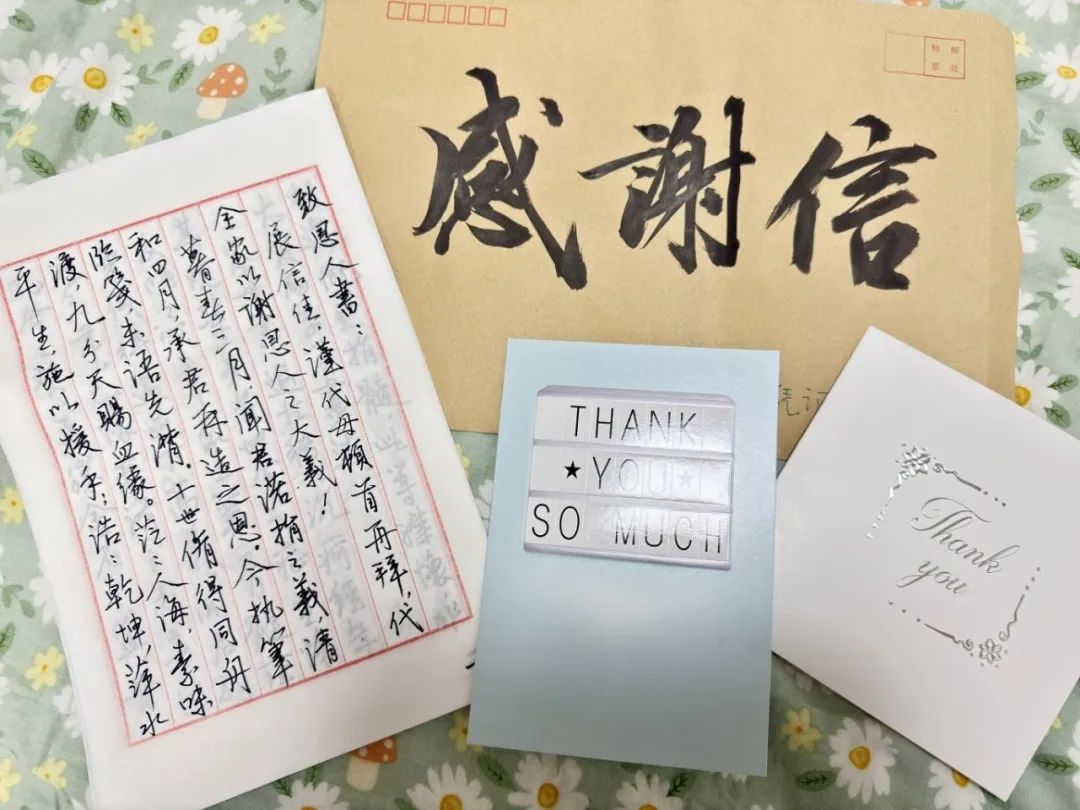 感謝信
贴邮
票处
致恩人書：
展信佳，谨代母頓首再拜，代
全家以谢恩人之大義！
暮春三月，闻君诺捐之義，清
和四月，承君再造之恩。今执筆
临箋，未语先潸。十世修得同舟
渡，九分天赐血缘。茫〻人海，素味
平生，施以援手；浩〻乾坤，萍水
THANK
★YOU★
SO MUCH
Thank
you